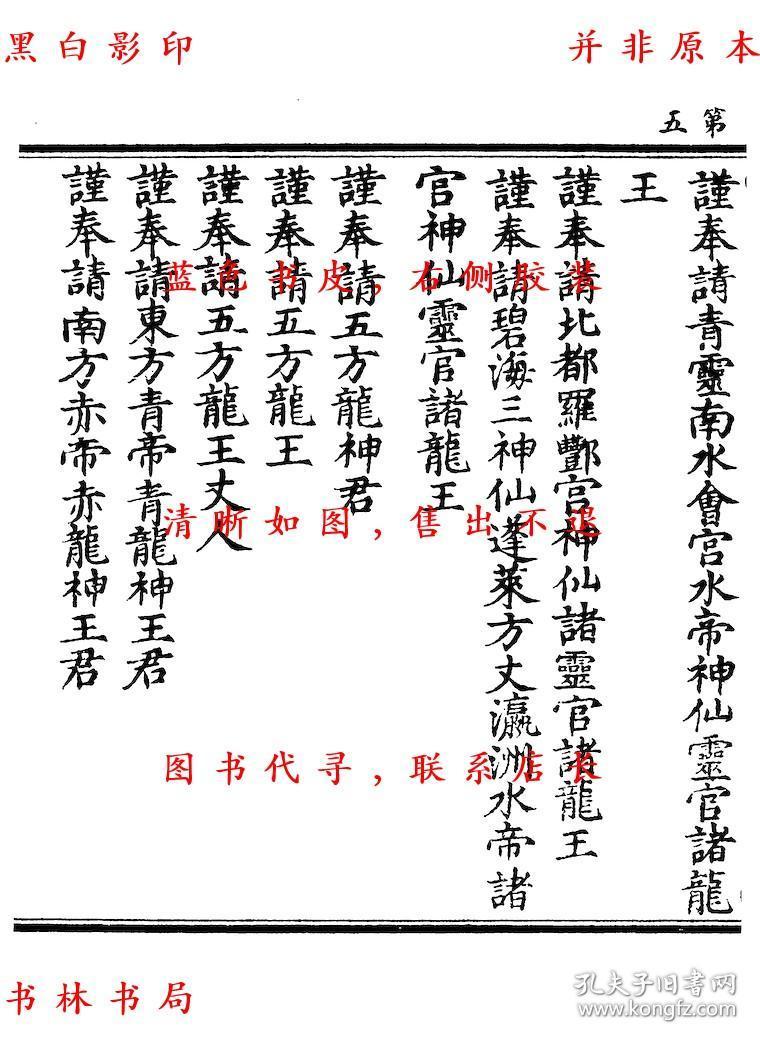 黑白影印
并非原本
第五
謹奉請青靈南水會宮水帝神仙靈官諸龍
王
謹奉請北都羅酆宮神仙諸靈官諸龍王
謹奉請碧海三神仙蓬萊方丈瀛洲水帝諸
官神仙靈官諸龍王
謹奉請五方龍神君
謹奉請五方龍王
謹奉請五方龍王丈人
謹奉請東方青帝青龍神王君
謹奉請南方赤帝赤龍神王君
蓝色书皮,右侧胶装
清晰如图,售出不退
图书代寻,联系店长
书林书局
孔夫子旧书网
www.kongfz.com